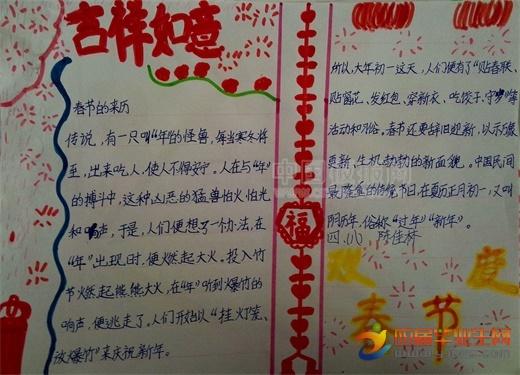 吉祥如意
春节的来历
传说，有一只叫“年”的怪兽，每当寒冬将
至，出来吃人，使人不得安宁。人在与“年”
的搏斗中，这种凶恶的猛兽怕火怕光
和响声，于是，人们便想了一个办法，在
“年”出现时，便燃起大火。投入竹
节燃起熊熊大火，在“年”听到爆竹的
响声，便逃走了。人们形成以“挂灯笼、
放爆竹”来庆祝新年。
福
所以，大年初一这天，人们便有了“贴春联、
贴窗花、发红包、穿新衣、吃饺子、守岁”等
活动和习俗。春节还要辞旧迎新，以示万象
更新，生机勃勃的新面貌。中国民间
最隆重的传统节日在夏历正月初一，又叫
阴历年，俗称“过年”“新年”。
四、八 陈佳桥
欢度
春节